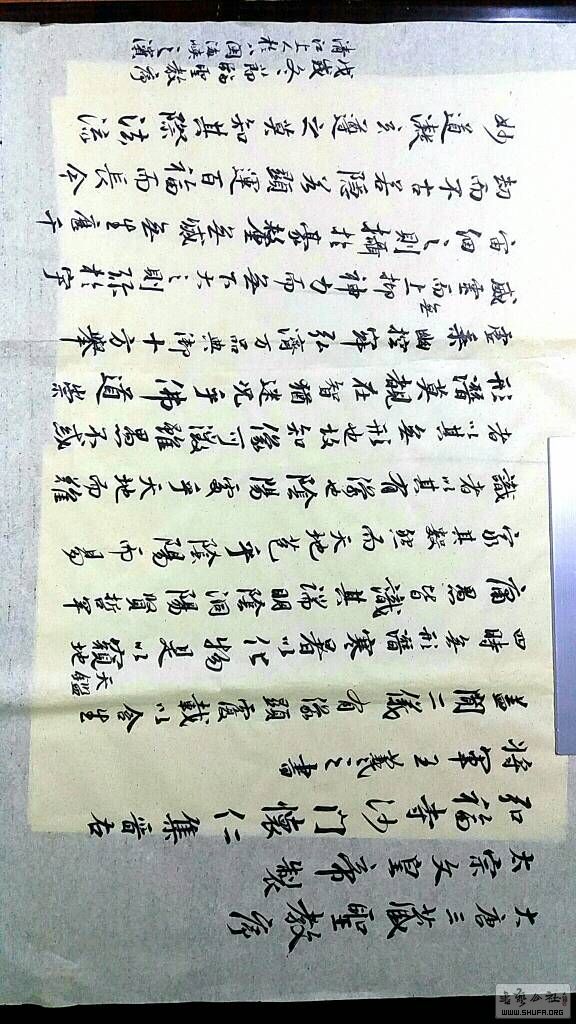 大唐三藏聖教序
太宗文皇帝製
弘福寺沙门懷仁集晉右
將軍王羲之書
蓋聞二儀有像顯覆載以含生
四時無形潛寒暑以化物是以窺天鑑地
庸愚皆識其端明陰洞陽賢哲罕
窮其數然而天地苞乎陰陽而易
識者以其有像也陰陽處乎天地而難
者以其無形也故知像可徵雖愚不惑
形潛莫覩在智猶迷況乎佛道崇
虛乘幽控寂弘濟万品典御十方舉
威靈而無上抑神力而無下大之則彌於宇
宙細之則攝於毫釐無滅無生歷千
劫而不古若隱若顯運百福而長今
妙道凝玄遵之莫知其際法流
戊戌冬節臨聖教序
清江上人於八閩海峽之濱
WWW.SHUFA.ORG